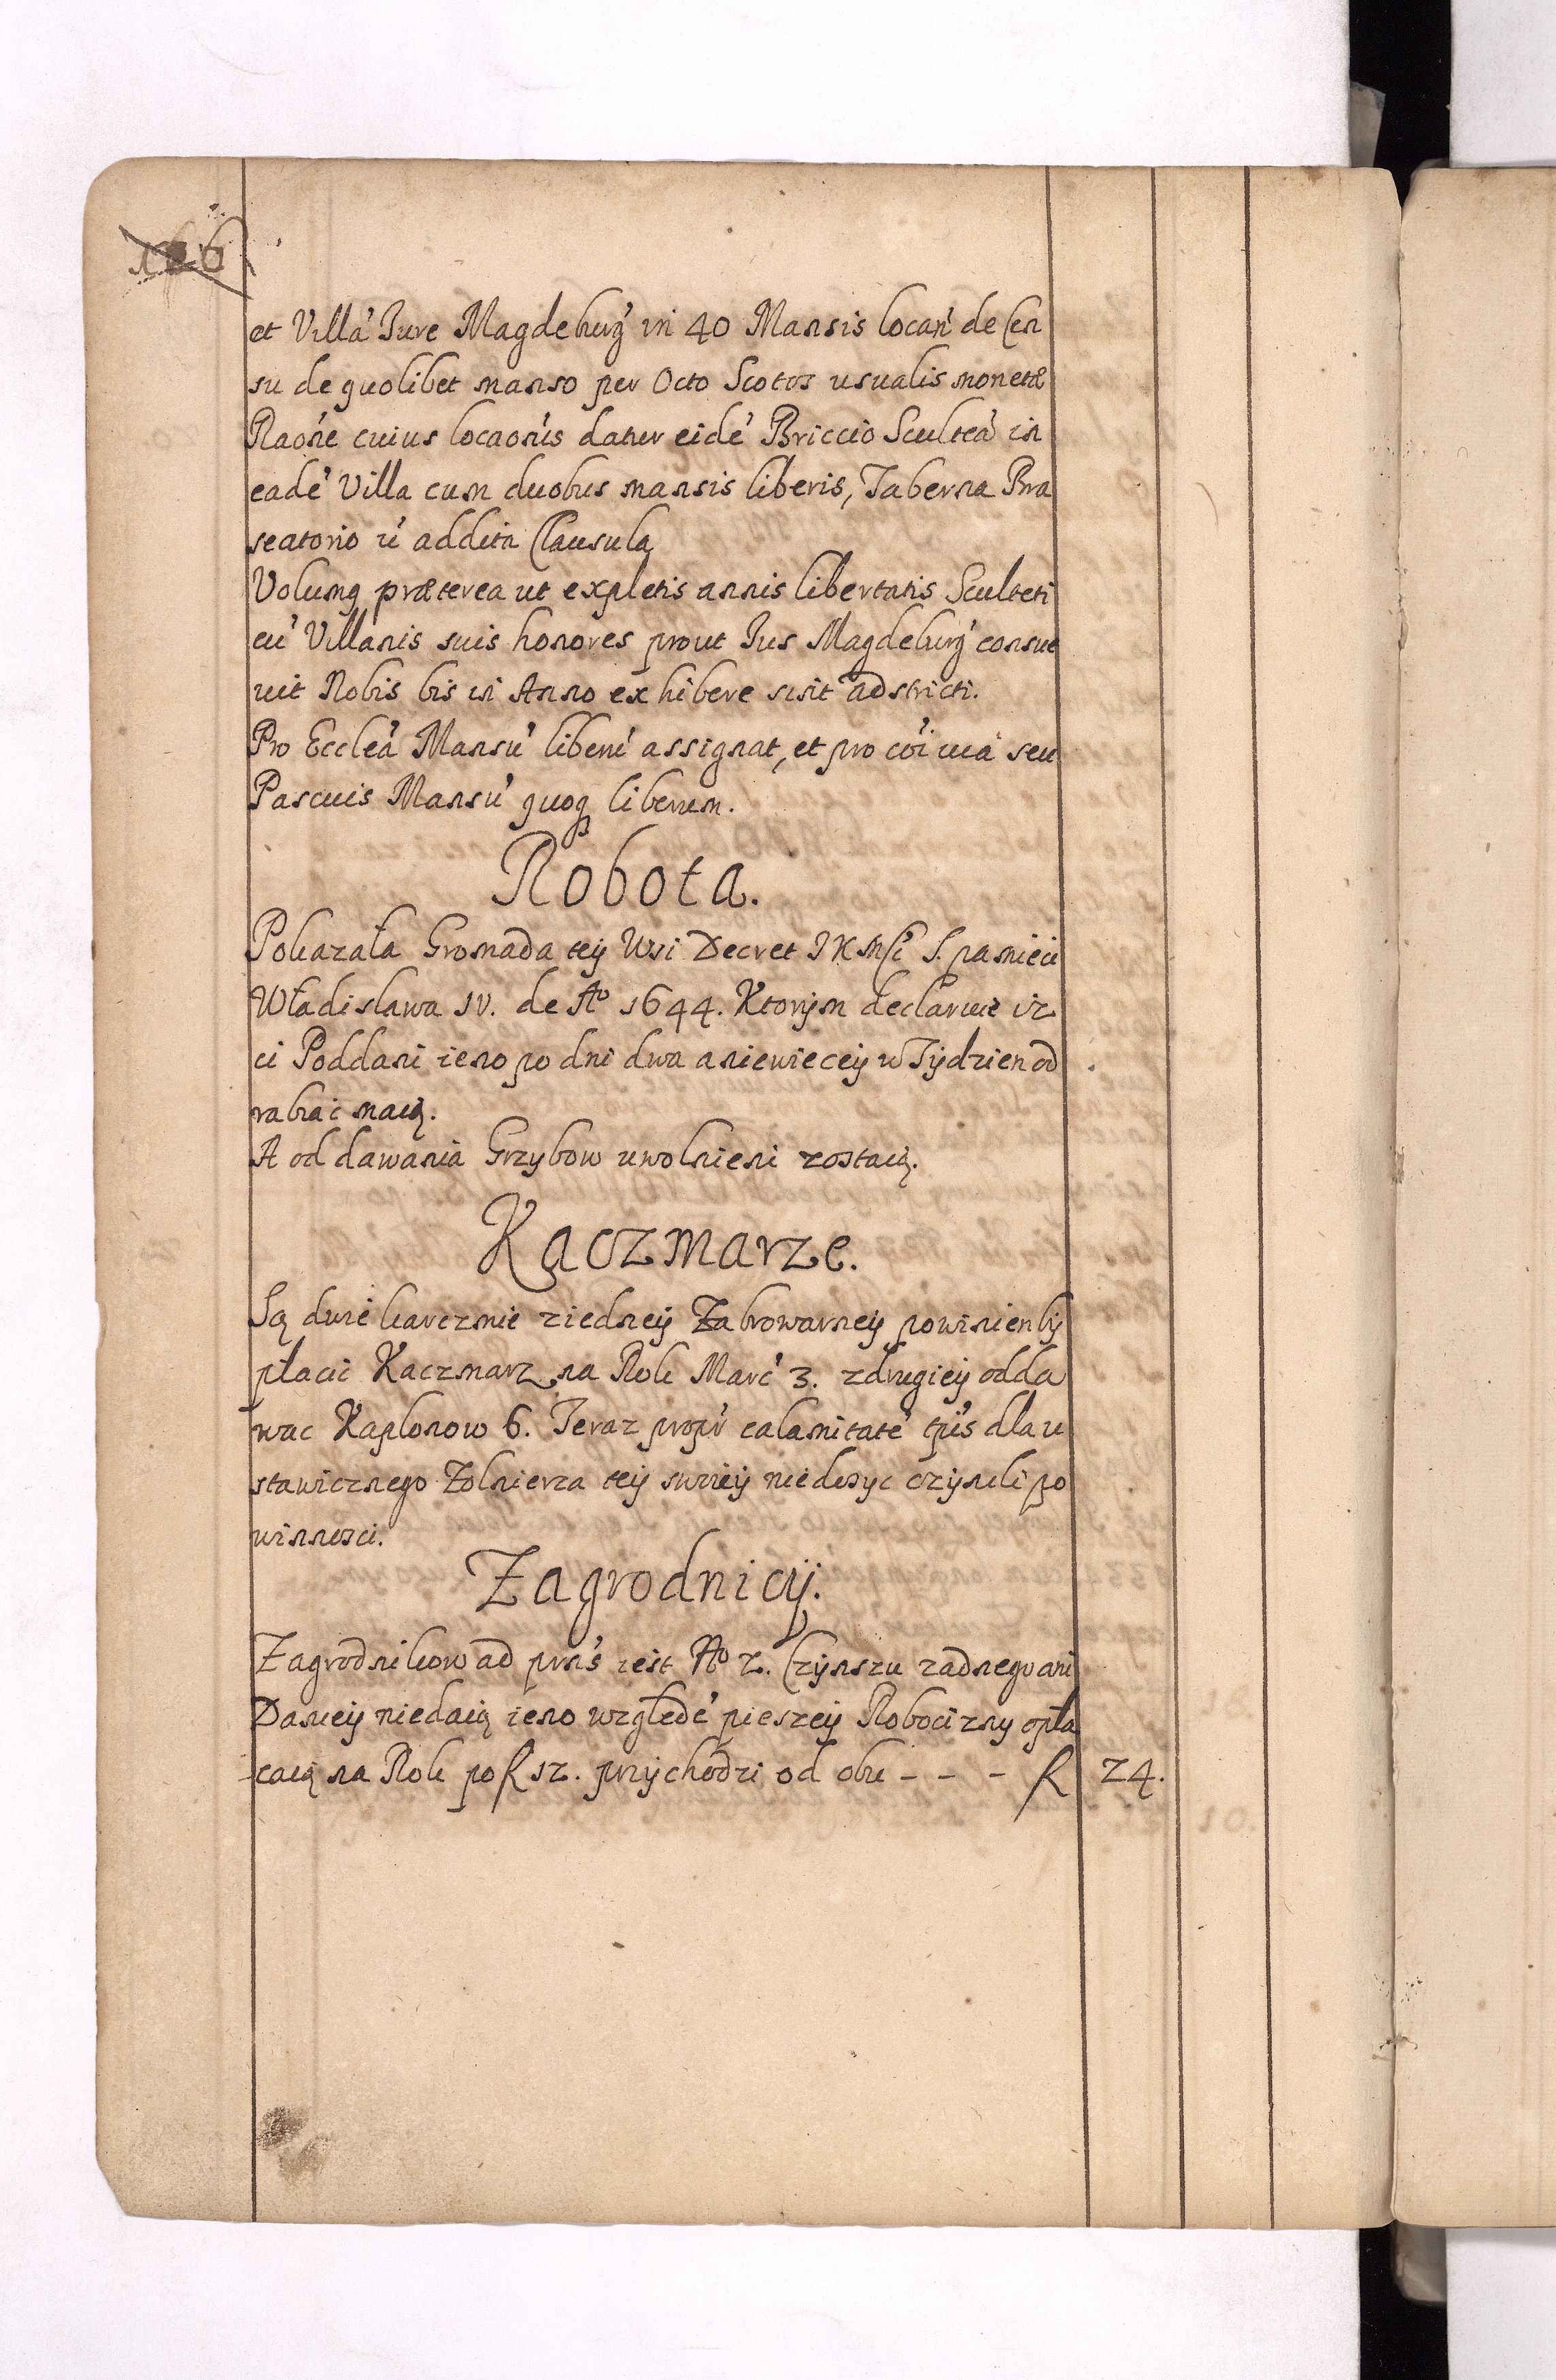 166
et Villa' Jure Magdeburg' in 40 Mansis locan' de Cen
su de quolibet manso per Octo Scotos usualis monetæ
Raone' cuius locaonis' datur eide' Briccio Sculcea' in
eade' Villa cum duobus mansis liberis, Taberna Bra
seatorio u' addita Clausula
Volumq præterea ut expletis annis libertatis Sculteti
cu' Villanis suis honores prout Jus Magdeburg' consue
uit Nobis bis in Anno exhibere sint adstricti.
Pro Ecclea' Mansu' liberu' assignat, et pro coi' ua' seu
Pascuis Mansu' quoq liberum.
Robota.
Pokazała Gromada teÿ Wsi Decret JKMsci S. pamieci
Władisława IV. de Ao 1644. Ktorÿm declaruie iz
ci Poddani ieno po dni dwa a niewieceÿ w Tÿdzien od
rabiac maią.
A od dawania Grzybow uwolnieni zostaią.
Kaczmarze.
Są dwie karczmie ziedneÿ Zabrowarneÿ powinien bÿ
płacic Kaczmarz na Rok Marc' 3. zdrugieÿ odda
wac Kapłonow 6. Teraz propr' calamitate' tpis' dla u
stawicznego Zolnierza teÿ swoieÿ niedosyc czÿnili po
winnosci.
Zagrodnicÿ.
Zagrodnikow ad prns' iest No 2. Czÿnszu zadnego ani
Danieÿ niedaią ieno wzglede' pieszeÿ Robocizny opła
caią na Rok po f 12. przÿchodzi od obu - - - f 24.